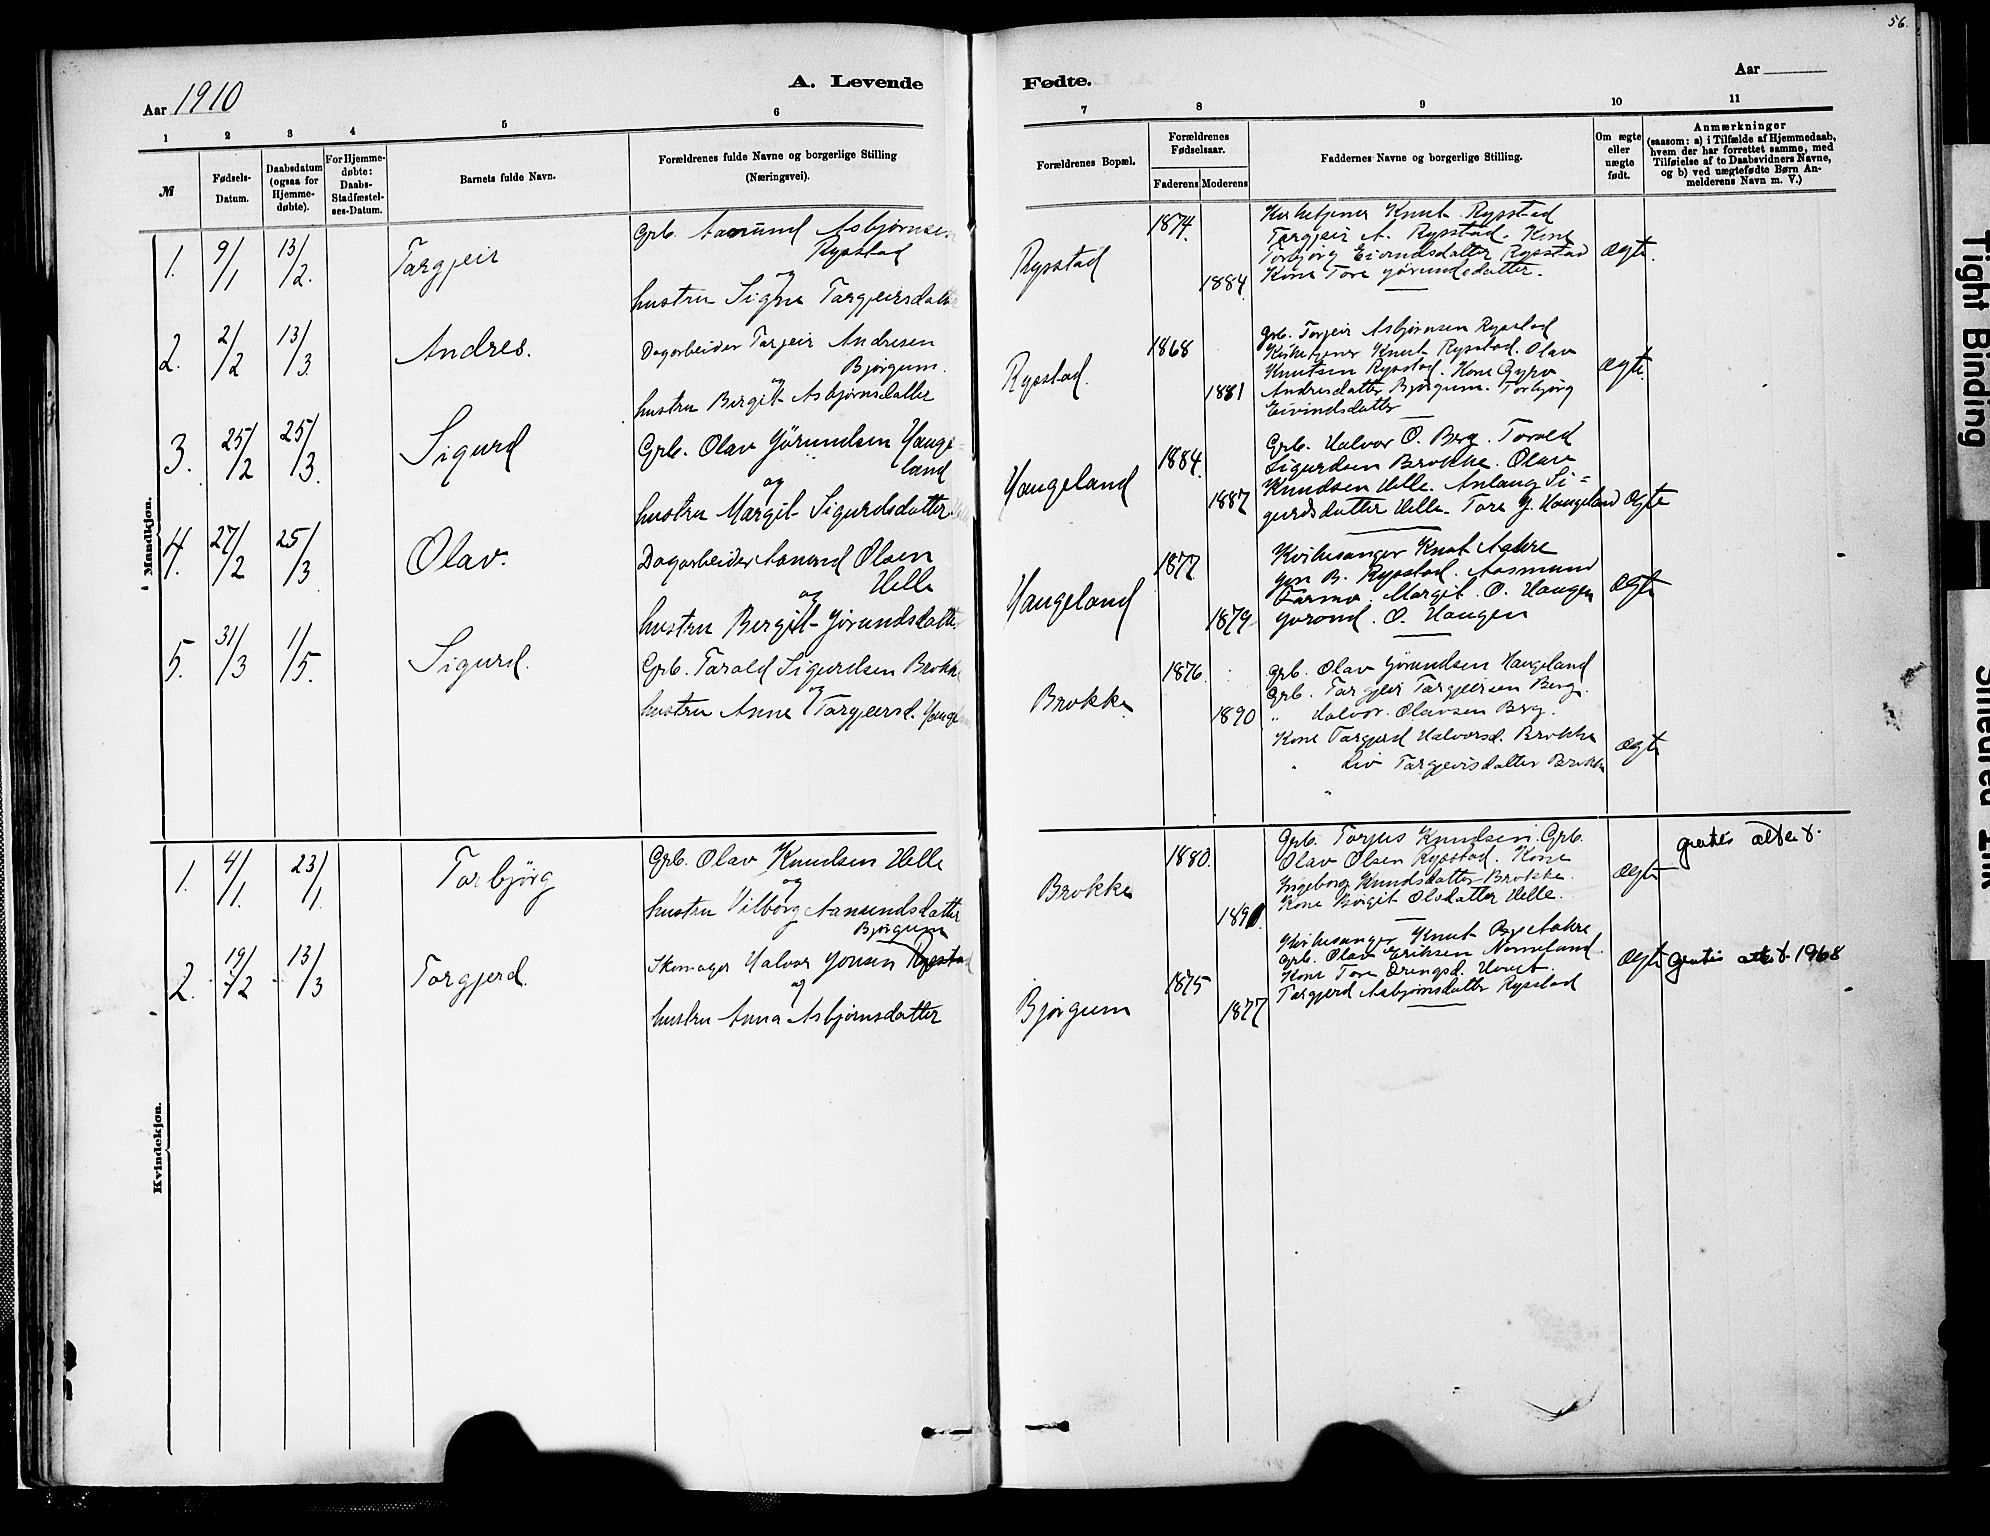 56.
Aar 1910
A. Levende
Fødte.
Aar
1 2 3 4 5 6
7 8 9 10 11
№
Fødsels-
Datum.
Daabsdatum
(ogsaa for
Hjemme-
døbte).
For Hjemme-
døbte:
Daabs-
Stadfæstel-
ses-Datum.
Barnets fulde Navn.
Forældrenes fulde Navne og borgerlige Stilling
(Næringsvei).
Forældrenes Bopæl.
Forældrenes
Fødselsaar.
Faderens
Moderens
Faddernes Navne og borgerlige Stilling.
Om ægte
eller
uægte
født.
Anmærkninger
(saasom: a) i Tilfælde af Hjemmedaab,
hvem der har forrettet samme, med
Tilføielse af to Daabsvidners Navne,
og b) ved uægtefødte Børn An-
melderens Navn m. V.)
Mandkjøn.
1. 9/1 13/2. Targjeir
Grb. Aamund Asbjørnsen
Rysstad
og
hustru Signe Targjeirsdatter
Rysstad 1874. 1884.
Kirketjener Knut Rysstad
Targjeir A. Rysstad. Kone
Torbjørg Eivindsdatter Rysstad
Kone Tore Jørundsdatter.
ægte.
2. 2/2 13/3 Andres.
Dagarbeider Targjeir Andresen
Bjørgum.
og
hustru Bergit Asbjørnsdatter
Rysstad. 1868 1881
Grb. Torjeir Asbjørnsen Rysstad
Kirketjener Knut Rysstad. Olav
Knutsen Rysstad. Kone Gyro
Andresdatter Bjørgum. Torbjørg
Eivindsdatter
ægte.
3. 25/2 25/3. Sigurd
Grb. Olav Jørundsen Hauge-
land
og
hustru Margit Sigurdsdatter
Haugeland 1884. 1887
Grb. Halvor O. Berg. Torold
Sigurdsen Brokke. Olav
Knudsen Helle. Anlaug Si-
gurdsdatter Helle. Tore J. Haugeland
ægte
4. 27/2 25/3 Olav.
Dagarbeider Aanund Olsen
Helle
og
hustru Bergit Jørundsdatter
Haugeland 1877 1879
Kirkesanger Knut Aakre
Jon B. Rysstad. Aasmund
Farmo. Margit O. Haugen
Jorond. O. Haugen
ægte
5. 31/3 1/5. Sigurd.
Grb. Tarald Sigurdsen Brokke
og
hustru Anne Targjeirsd.
Brokke 1876. 1890
Grb. Olav Jørundsen Haugeland
Grb. Targjeir Targjeirsen Berg.
" Halvor Olavsen Berg.
Kone Targjerd Halvorsd. Brokke
" Liv Targjeirsdatter Brokke
"
ægte
Kvindekjøn.
1. 4/1. 23/1. Torbjørg
Grb. Olav Knudsen Helle
og
hustru Vilborg Aanundsdatter
Brokke 1880. 1890
Grb. Torjus Knudsen. Grb.
Olav Olsen Rysstad. Kone
Ingeborg Knudsdatter Brokke.
Kone Birgit Olsdatter Helle.
ægte
gratis
2. 19/2 13/3 Torgjerd.
Bjørgum
Skomager Halvor Jonsen Rysstad
og
hustru Anna Asbjørnsdatter
Bjørgum 1875 1877
Kirkesanger Knut Aakre
Grb. Olav Eriksen Nomeland.
Kone Tore Drengsd.
Targjerd Asbjørnsdatter Rysstad
ægte
gratis 1968
Tight Binding